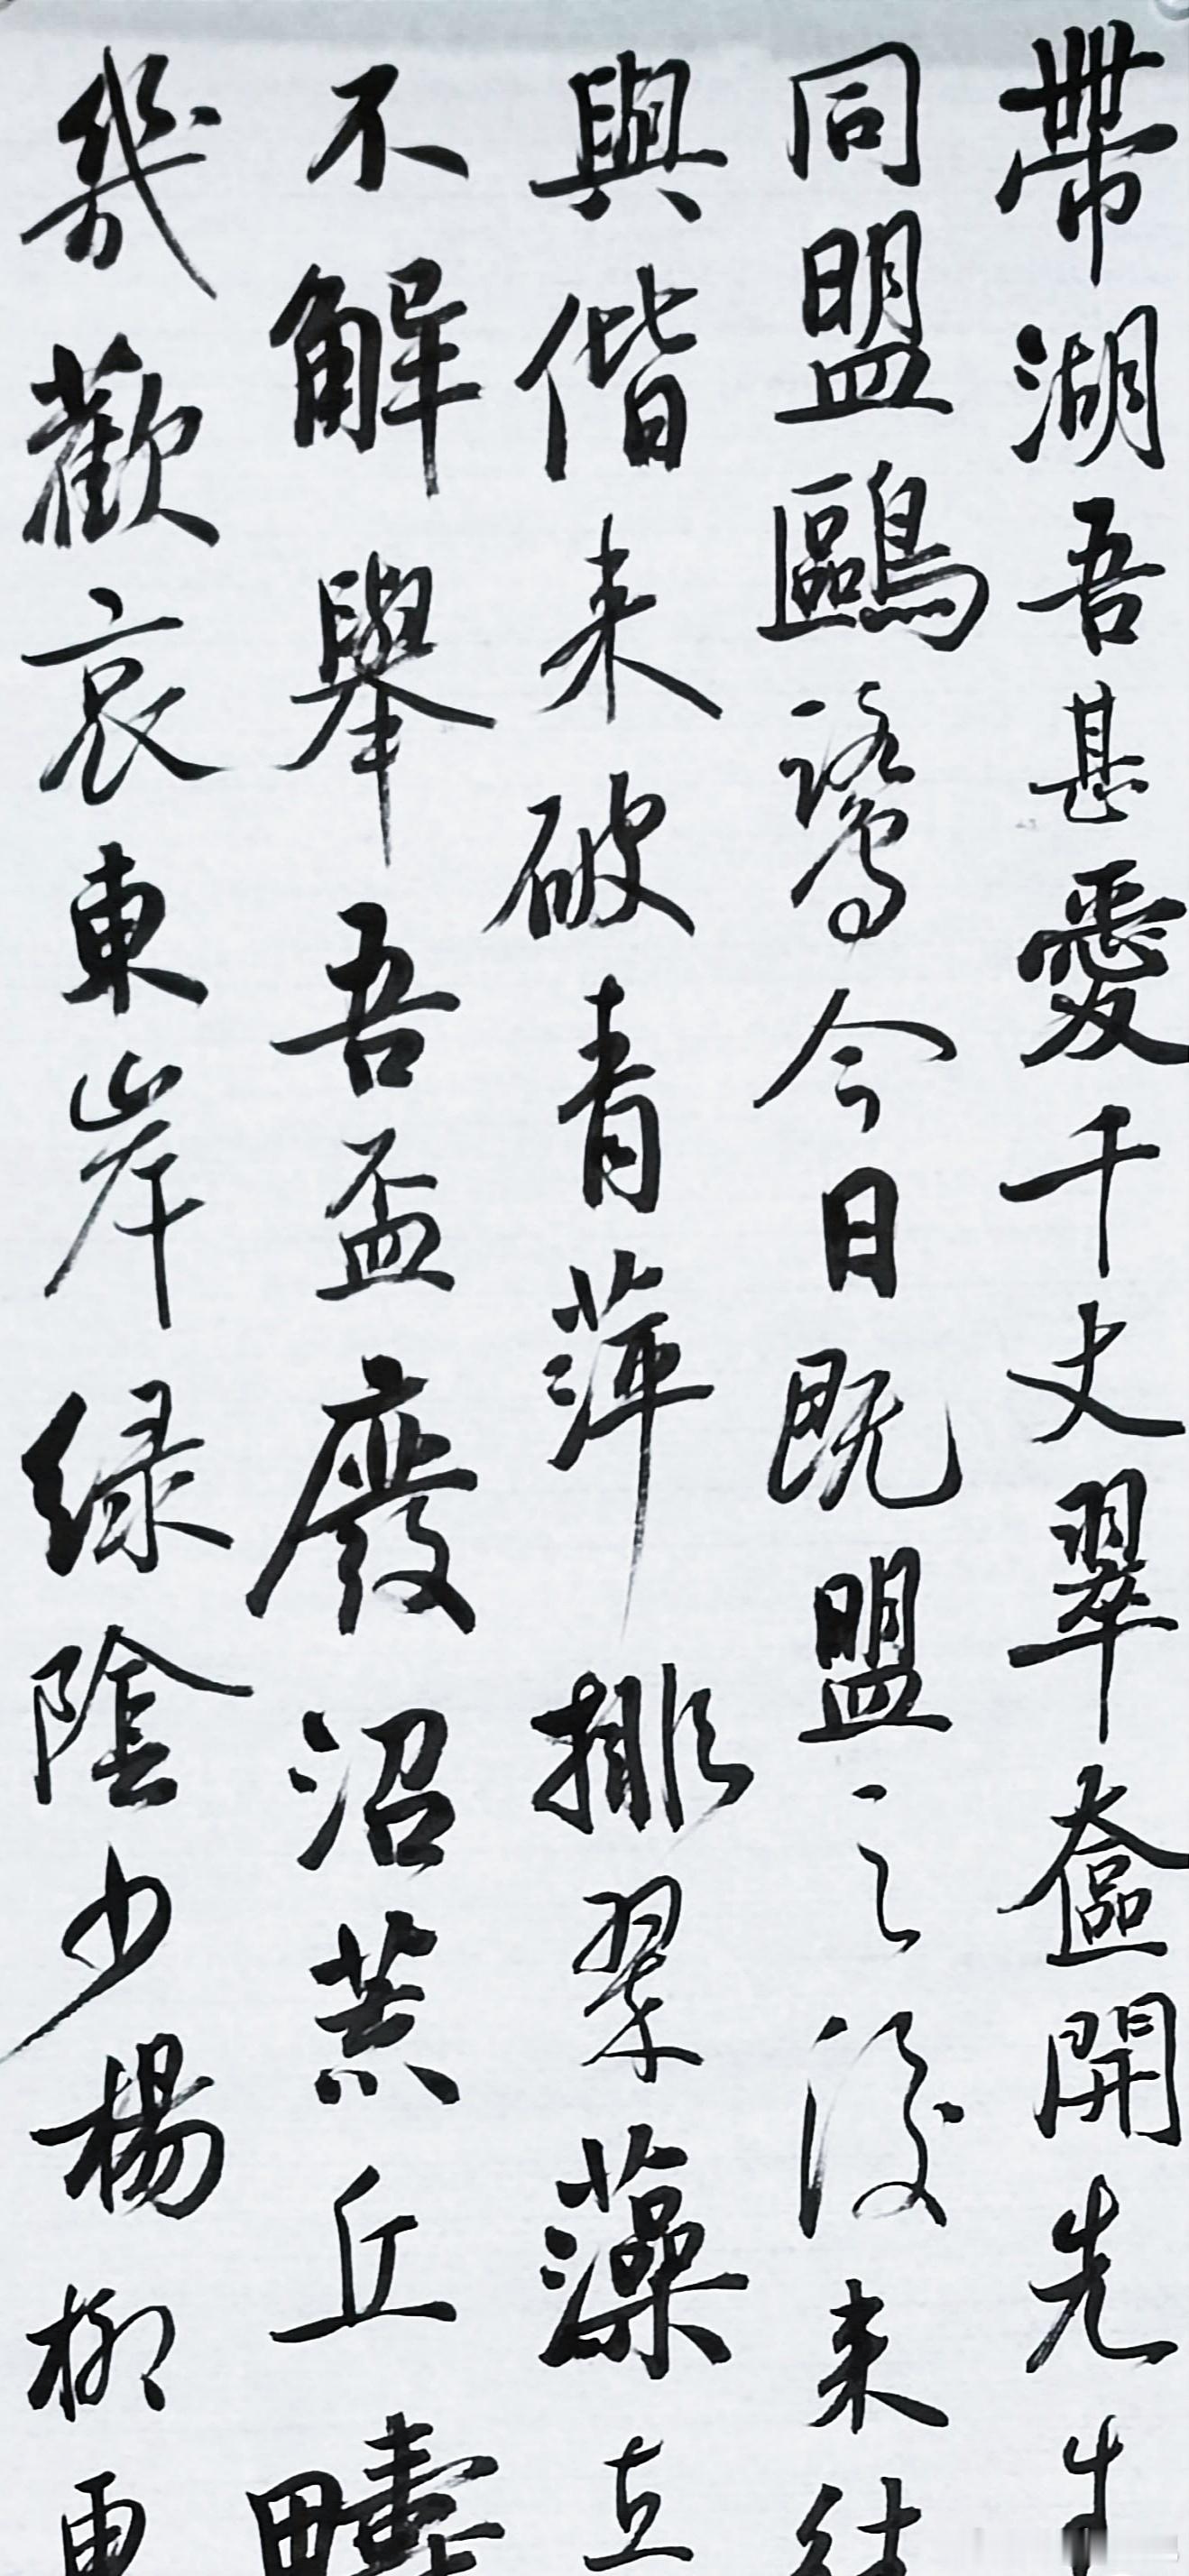 帶湖吾甚愛千丈翠奩開先生
同盟鷗鷺今日既盟之後来往
與偕来破青萍排翠藻立
不解舉吾盃廢沼荒丘疇
幾歡哀東岸緑陰少楊柳更